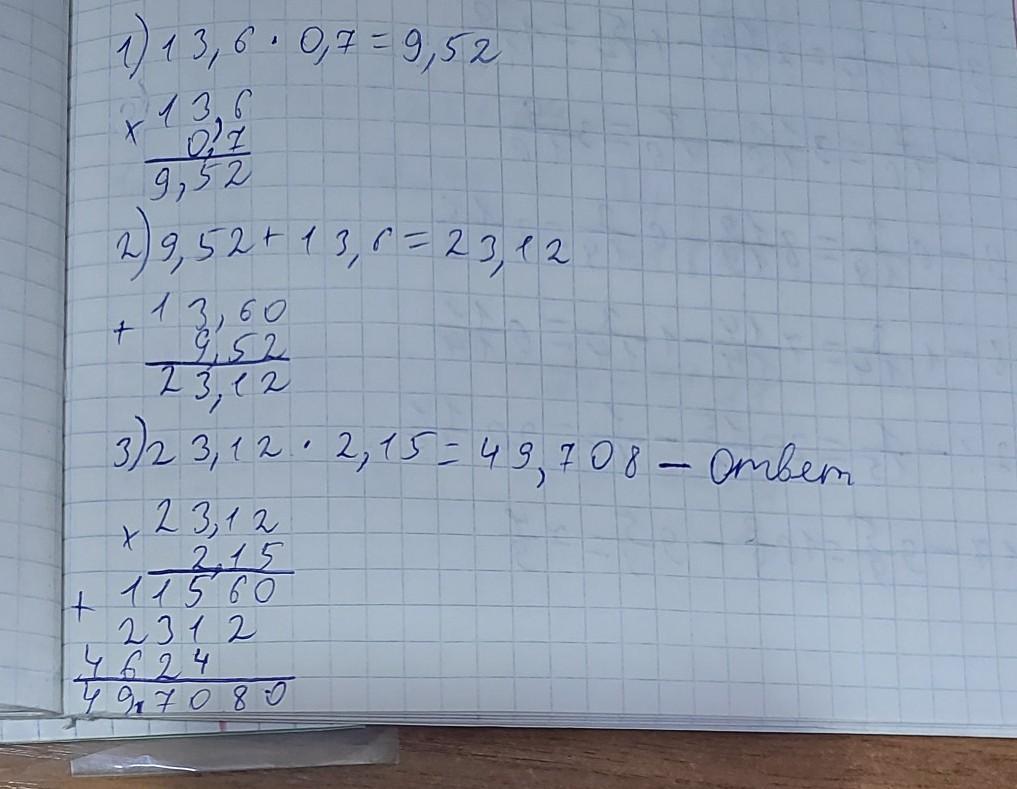 1) 13,6 · 0,7 = 9,52
× 13,6
0,7
9,52
2) 9,52 + 13,6 = 23,12
+ 13,60
9,52
23,12
3) 23,12 · 2,15 = 49,708 — ответ
× 23,12
2,15
+ 11560
2312
4624
49,7080